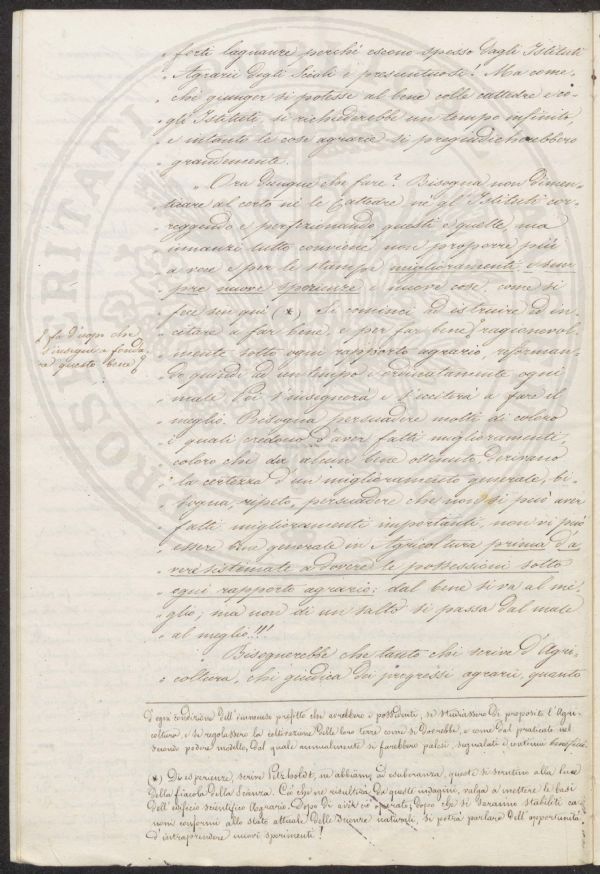 „ forti lagnanze perchè escono spesso dagli Istituti
„ Agrarii degli Scioli e presuntuosi! Ma come-
„ chè giunger si potesse al bene colle cattedre e co-
„ gli Istituti, si richiederebbe un tempo infinito,
„ e intanto le cose agrarie si pregiudicherebbero
„ grandemente.
„ Ora dunque che fare? Bisogna non dimen-
„ ticare al certo nè le Cattedre nè gl'Istituti cor-
„ reggendo e perfezionando questi e quelle, ma
„ innanzi tutto conviene non proporre più
„ a voce e per le stampe miglioramenti, e sem
„ pre nuove sperienze e nuove cose, come si
„ fece sin quì (*) Si cominci ad istruire ad in-
„ citare a far bene, e per far bene ragionevol-
„ mente sotto ogni rapporto agrario, riforman-
„ do quindi ad un tempo e ordinatamente ogni
„ male. Poi s'insegnerà e s'ecciterà a fare il
„ meglio. Bisogna persuadere molti di coloro
„ i quali credono d'aver fatti miglioramenti,
„ coloro che da alcun bene ottenuto, derivano
„ la certezza d'un miglioramento generale, bi-
„ sogna, ripeto, persuadere che non si può aver
„ fatti miglioramenti importanti, non vi può
„ essere bene generale in Agricoltura prima d'a
„ vere sistemate a dovere le possessioni sotto
„ ogni rapporto agrario: dal bene si va al me-
„ glio; ma non di un salto si passa dal male
„ al meglio!!!
„ Bisognerebbe che tanto chi scrive d'Agri-
„ coltura, chi giudica dei progressi agrarii, quanto
fa d'uopo che
s'insegni a fonda
re questo bene
d'ogni condizione dell'immenso profitto che avrebbero i possidenti, se studiassero di proposito l'Agri-
coltura, e se regolassero la coltivazione delle loro terre come si dovrebbe, e come dal praticato nel
secondo podere modello, dal quale annualmente si farebbero palesi, segnalati e continui beneficii.
(*) Di esperienze, scrive Petzholdt, ne abbiamo ad esuberanza, queste si scrutino alla luce
della fiacola della scienza. Ciò che ne risulterà da queste indagini, valga a mettere le basi
dell'edificio scientifico Agrario. Dopo di aver ciò operato, dopo che si saranno stabiliti ca-
noni conformi allo stato attuale delle scienze naturali, si potrà parlare dell'opportunità
d'intraprendere nuovi sperimenti!
PROSPERITATI PUBLICAE